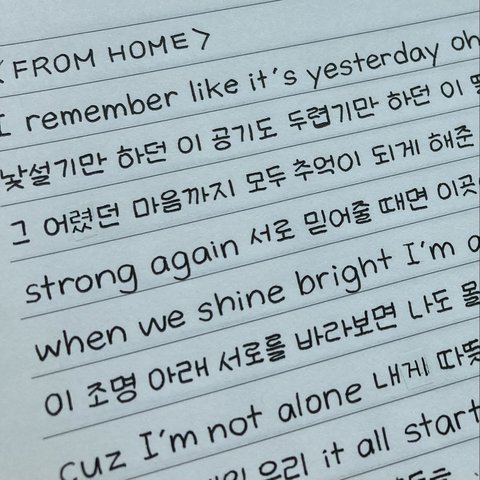 <FROM HOME>
I remember like it's yesterday oh
낯설기만 하던 이 공기도 두렵기만 하던 이
그 어렸던 마음까지 모두 추억이 되게 해준
strong again 서로 믿어줄 때면 이곳
when we shine bright I'm a
이 조명 아래 서로를 바라보면 나도 몰
cuz I'm not alone 내게 따뜻
우리 it all start